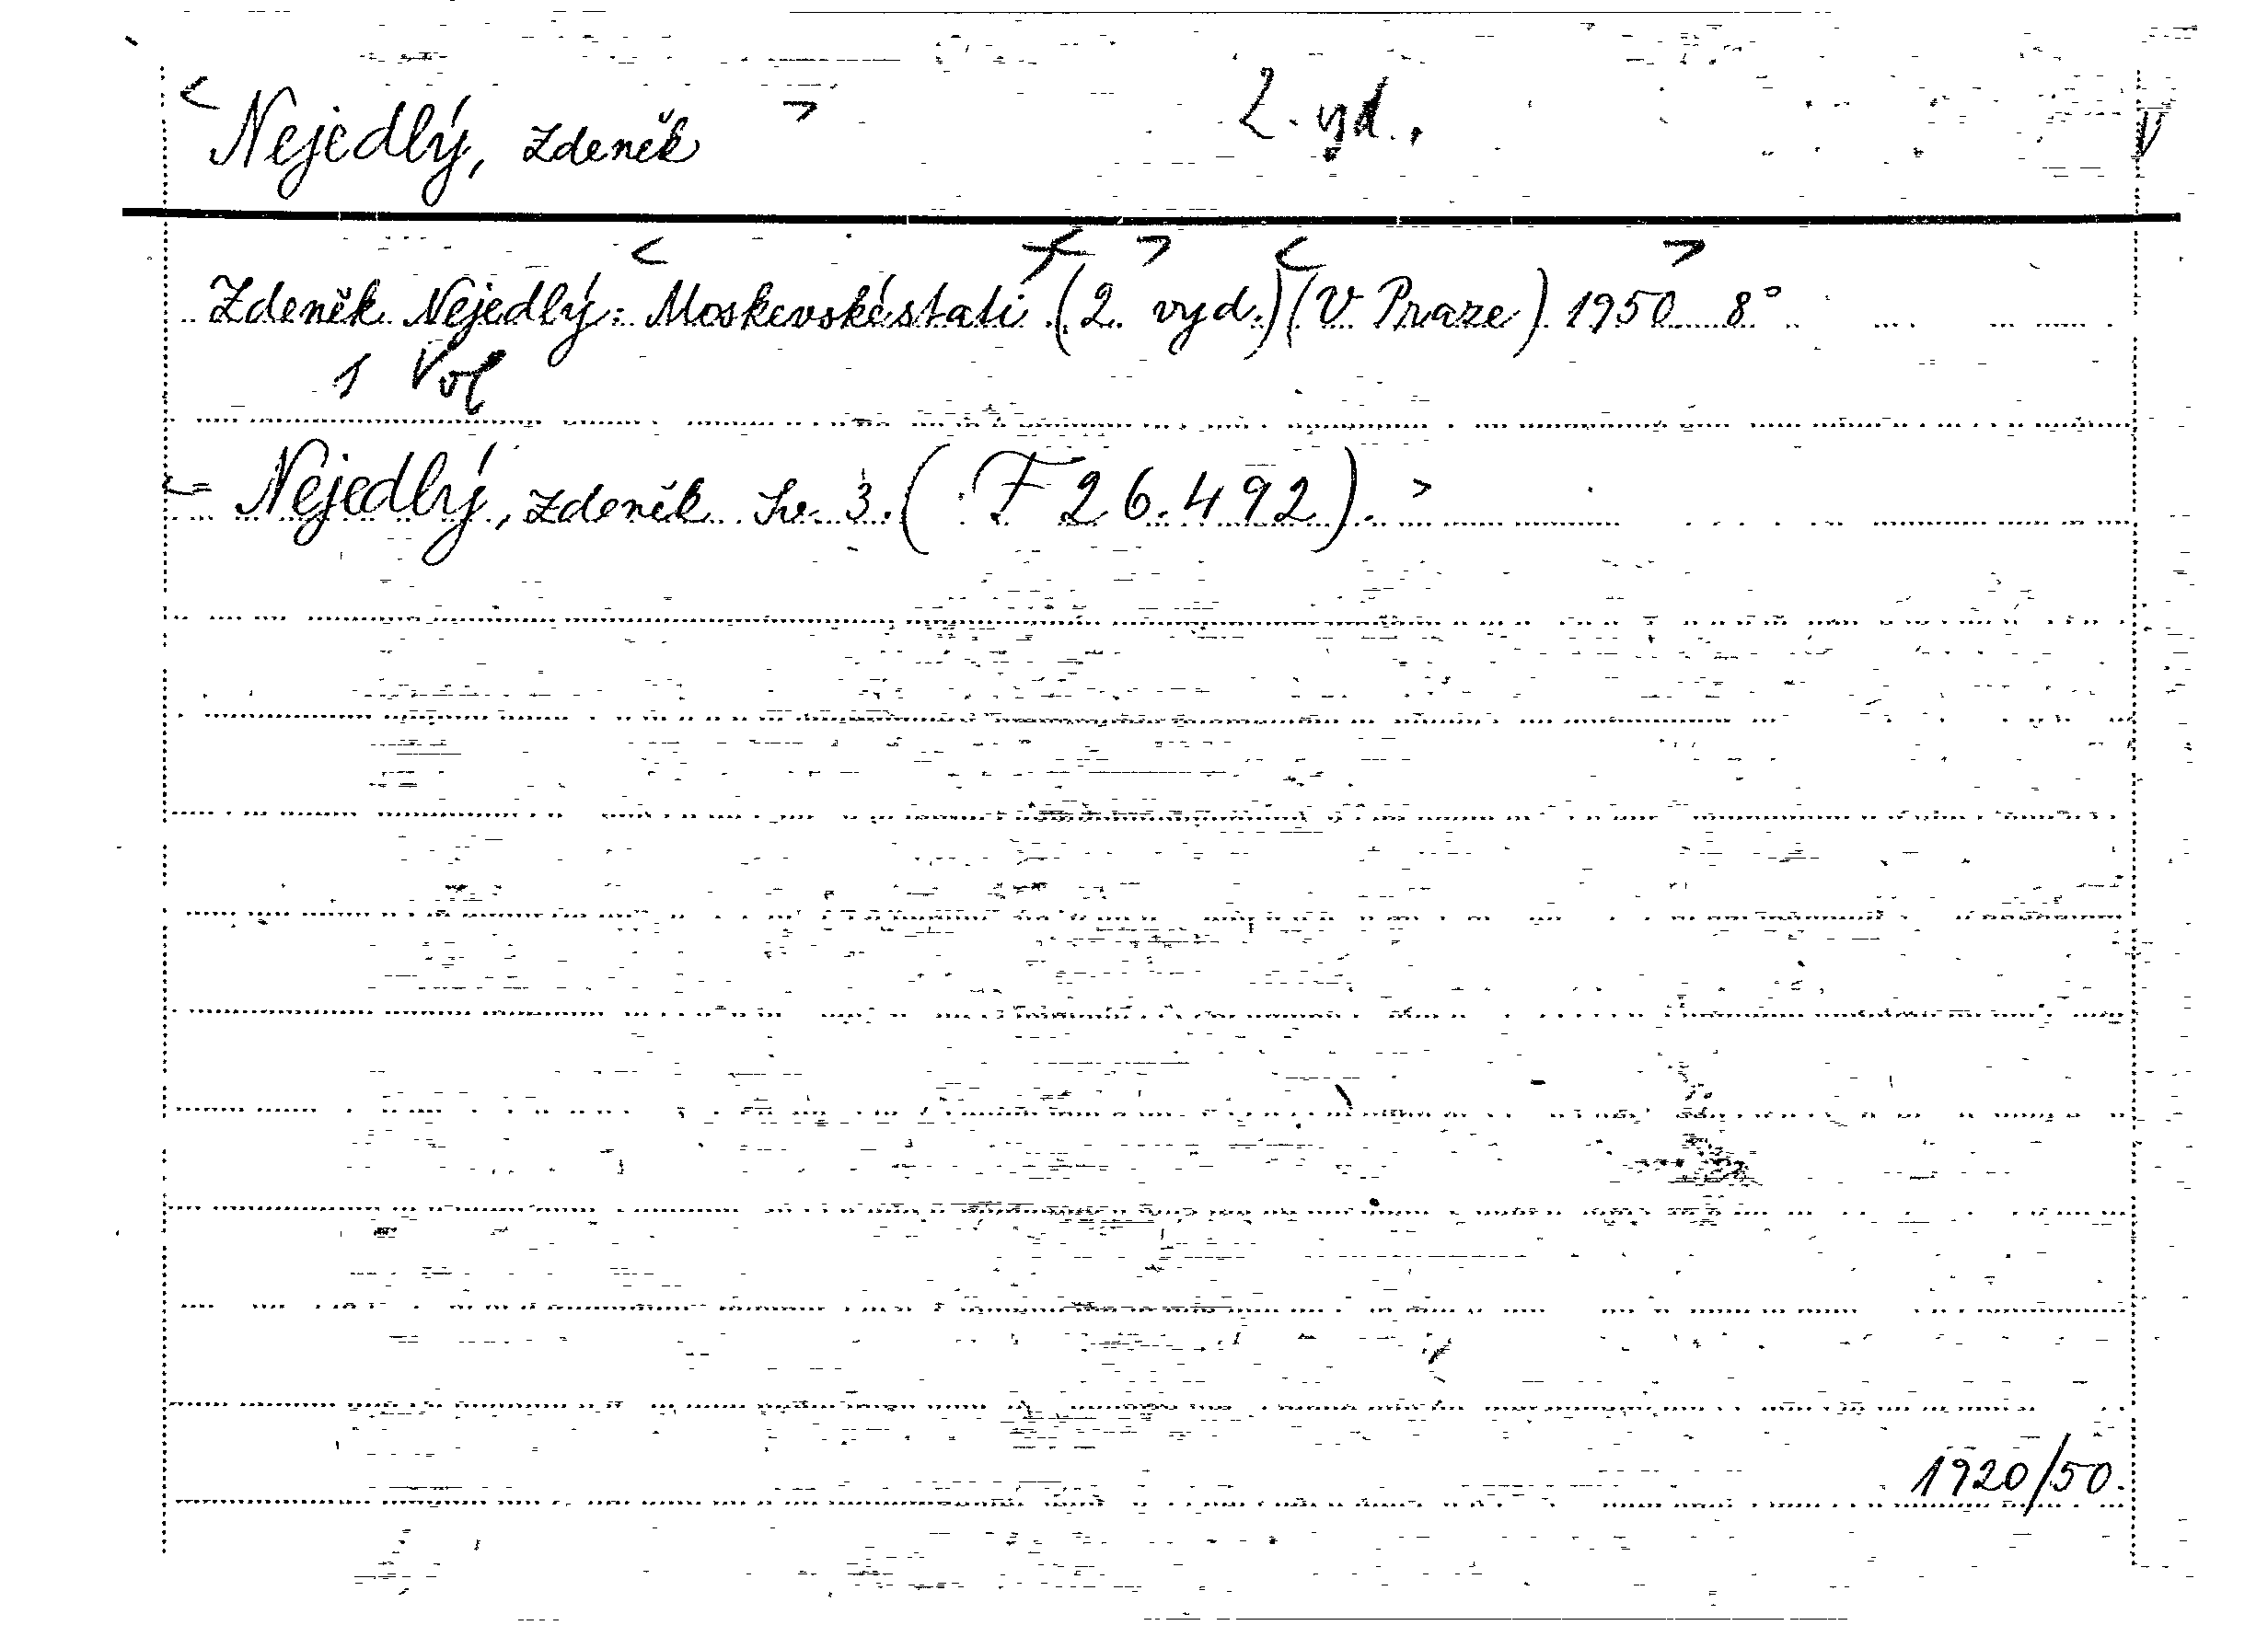 < Nejedlý, Zdeněk > 2. vyd. V
Zdeněk Nejedlý: < Moskevské stati > < (2. vyd.) > < (V Praze) > 1950 8°
1 Vol
<= Nejedlý, Zdeněk Sv. 3. (F 26.492). >
1920/50.